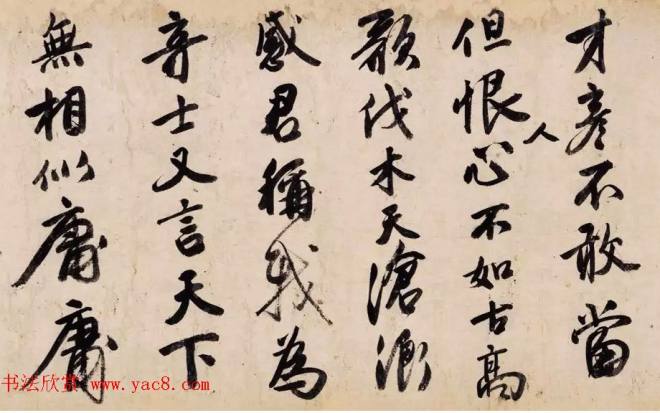 才彥不敢當
但恨人心不如古高
歌伐木天滄浪
感君稱我為
奇士又言天下
無相似庸庸
书法欣赏 www.yac8.com